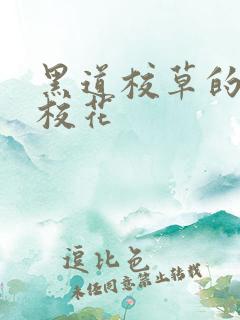 黑道校草的
校花
逗比色
未经同意禁止转载